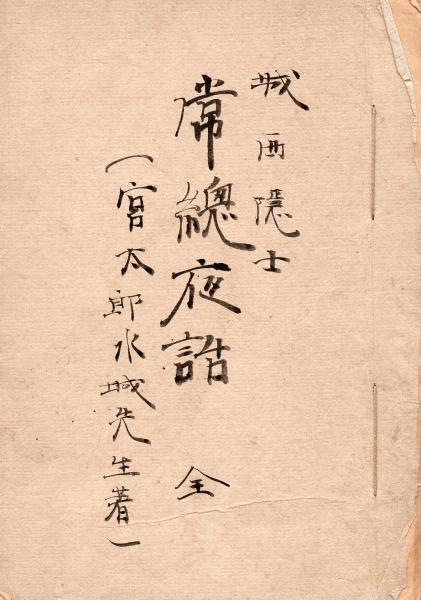 城西隱士
常總夜話 全
(宮太郎水城先生著)